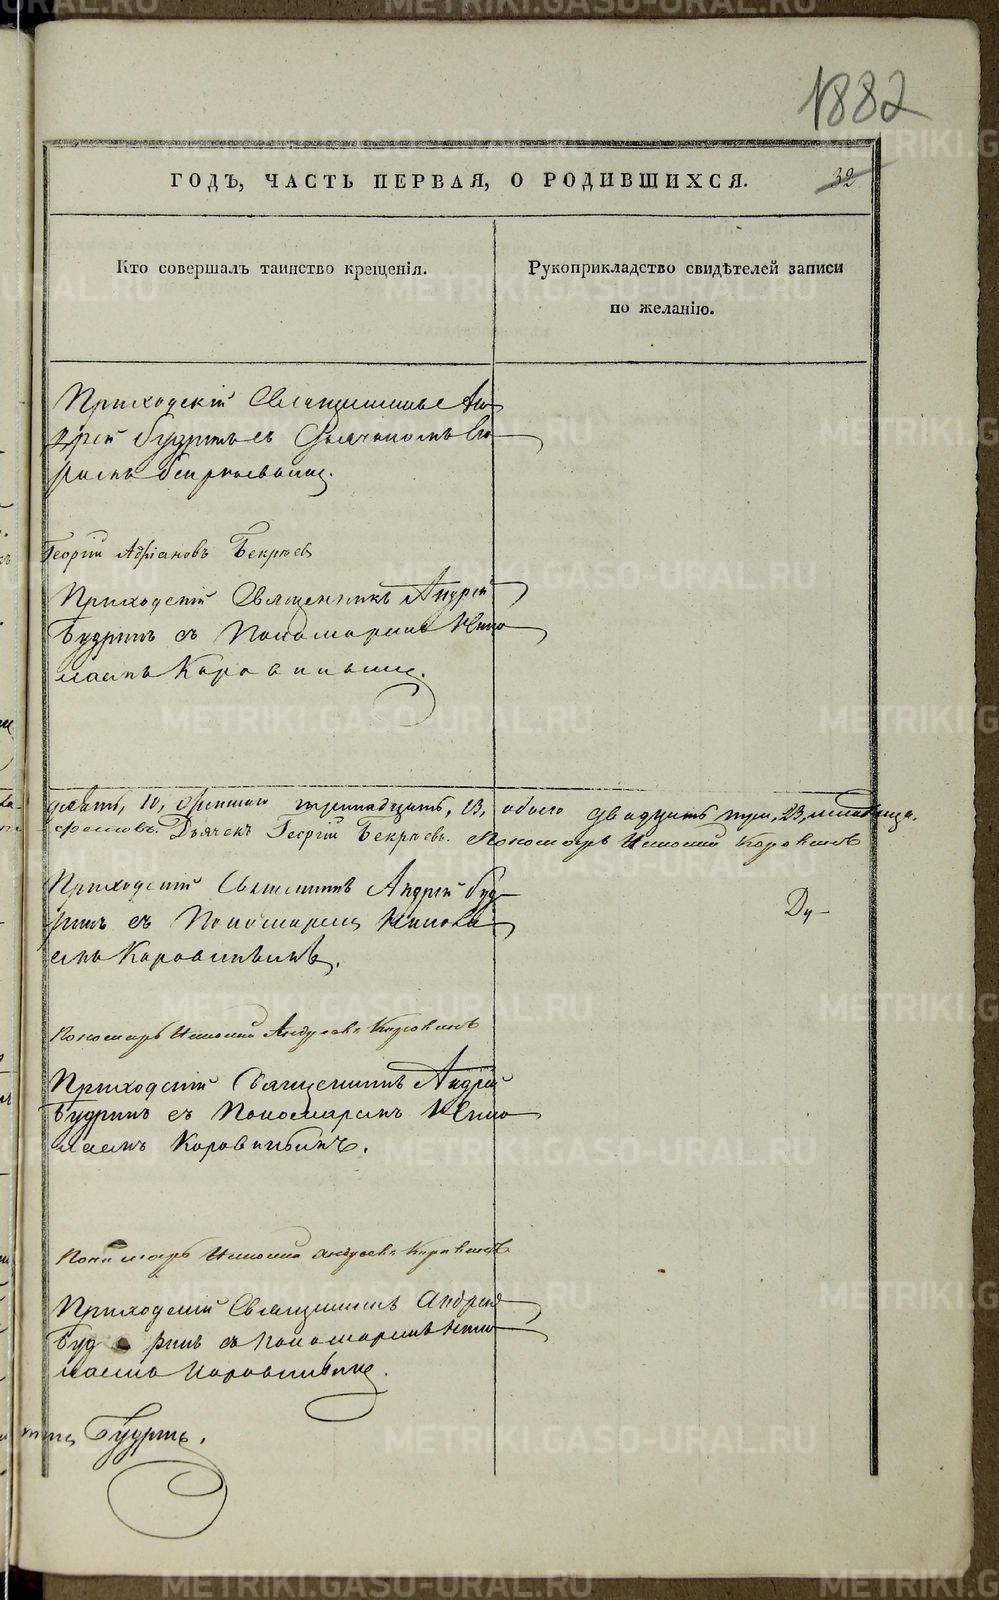 1882
ГОДЪ, ЧАСТЬ ПЕРВАЯ, О РОДИВШИХСЯ.
32
Кто совершалъ таинство крещенія.
Рукоприкладство свидѣтелей записи
по желанію.
Приходскій Священникъ Ан
дрей Будринъ съ Дьячкомъ Его
ромъ Бекрюевымъ.
Георгій Адріановъ Бекрюевъ
Приходскій Священникъ Андрей
Будринъ съ Пономаремъ Иппо
Коровинымъ.
10, женска тринадцать, 13, обоего двадцать три, 23,
Дьячекъ Георгій Бекрюевъ. Пономарь Коровинъ
Приходскій Священникъ Андрей Буд
ринъ съ Пономаремъ
Коровинымъ.
Ду
Пономарь Андреевъ Коровинъ
Приходскій Священникъ Андрей
Будринъ съ Пономаремъ Иппо
Коровинымъ.
Пономарь Андреевъ Коровинъ
Приходскій Священникъ Андрей
Будринъ съ Пономаремъ
Коровинымъ.
Будринъ.
METRIKI.GASO-URAL.RU